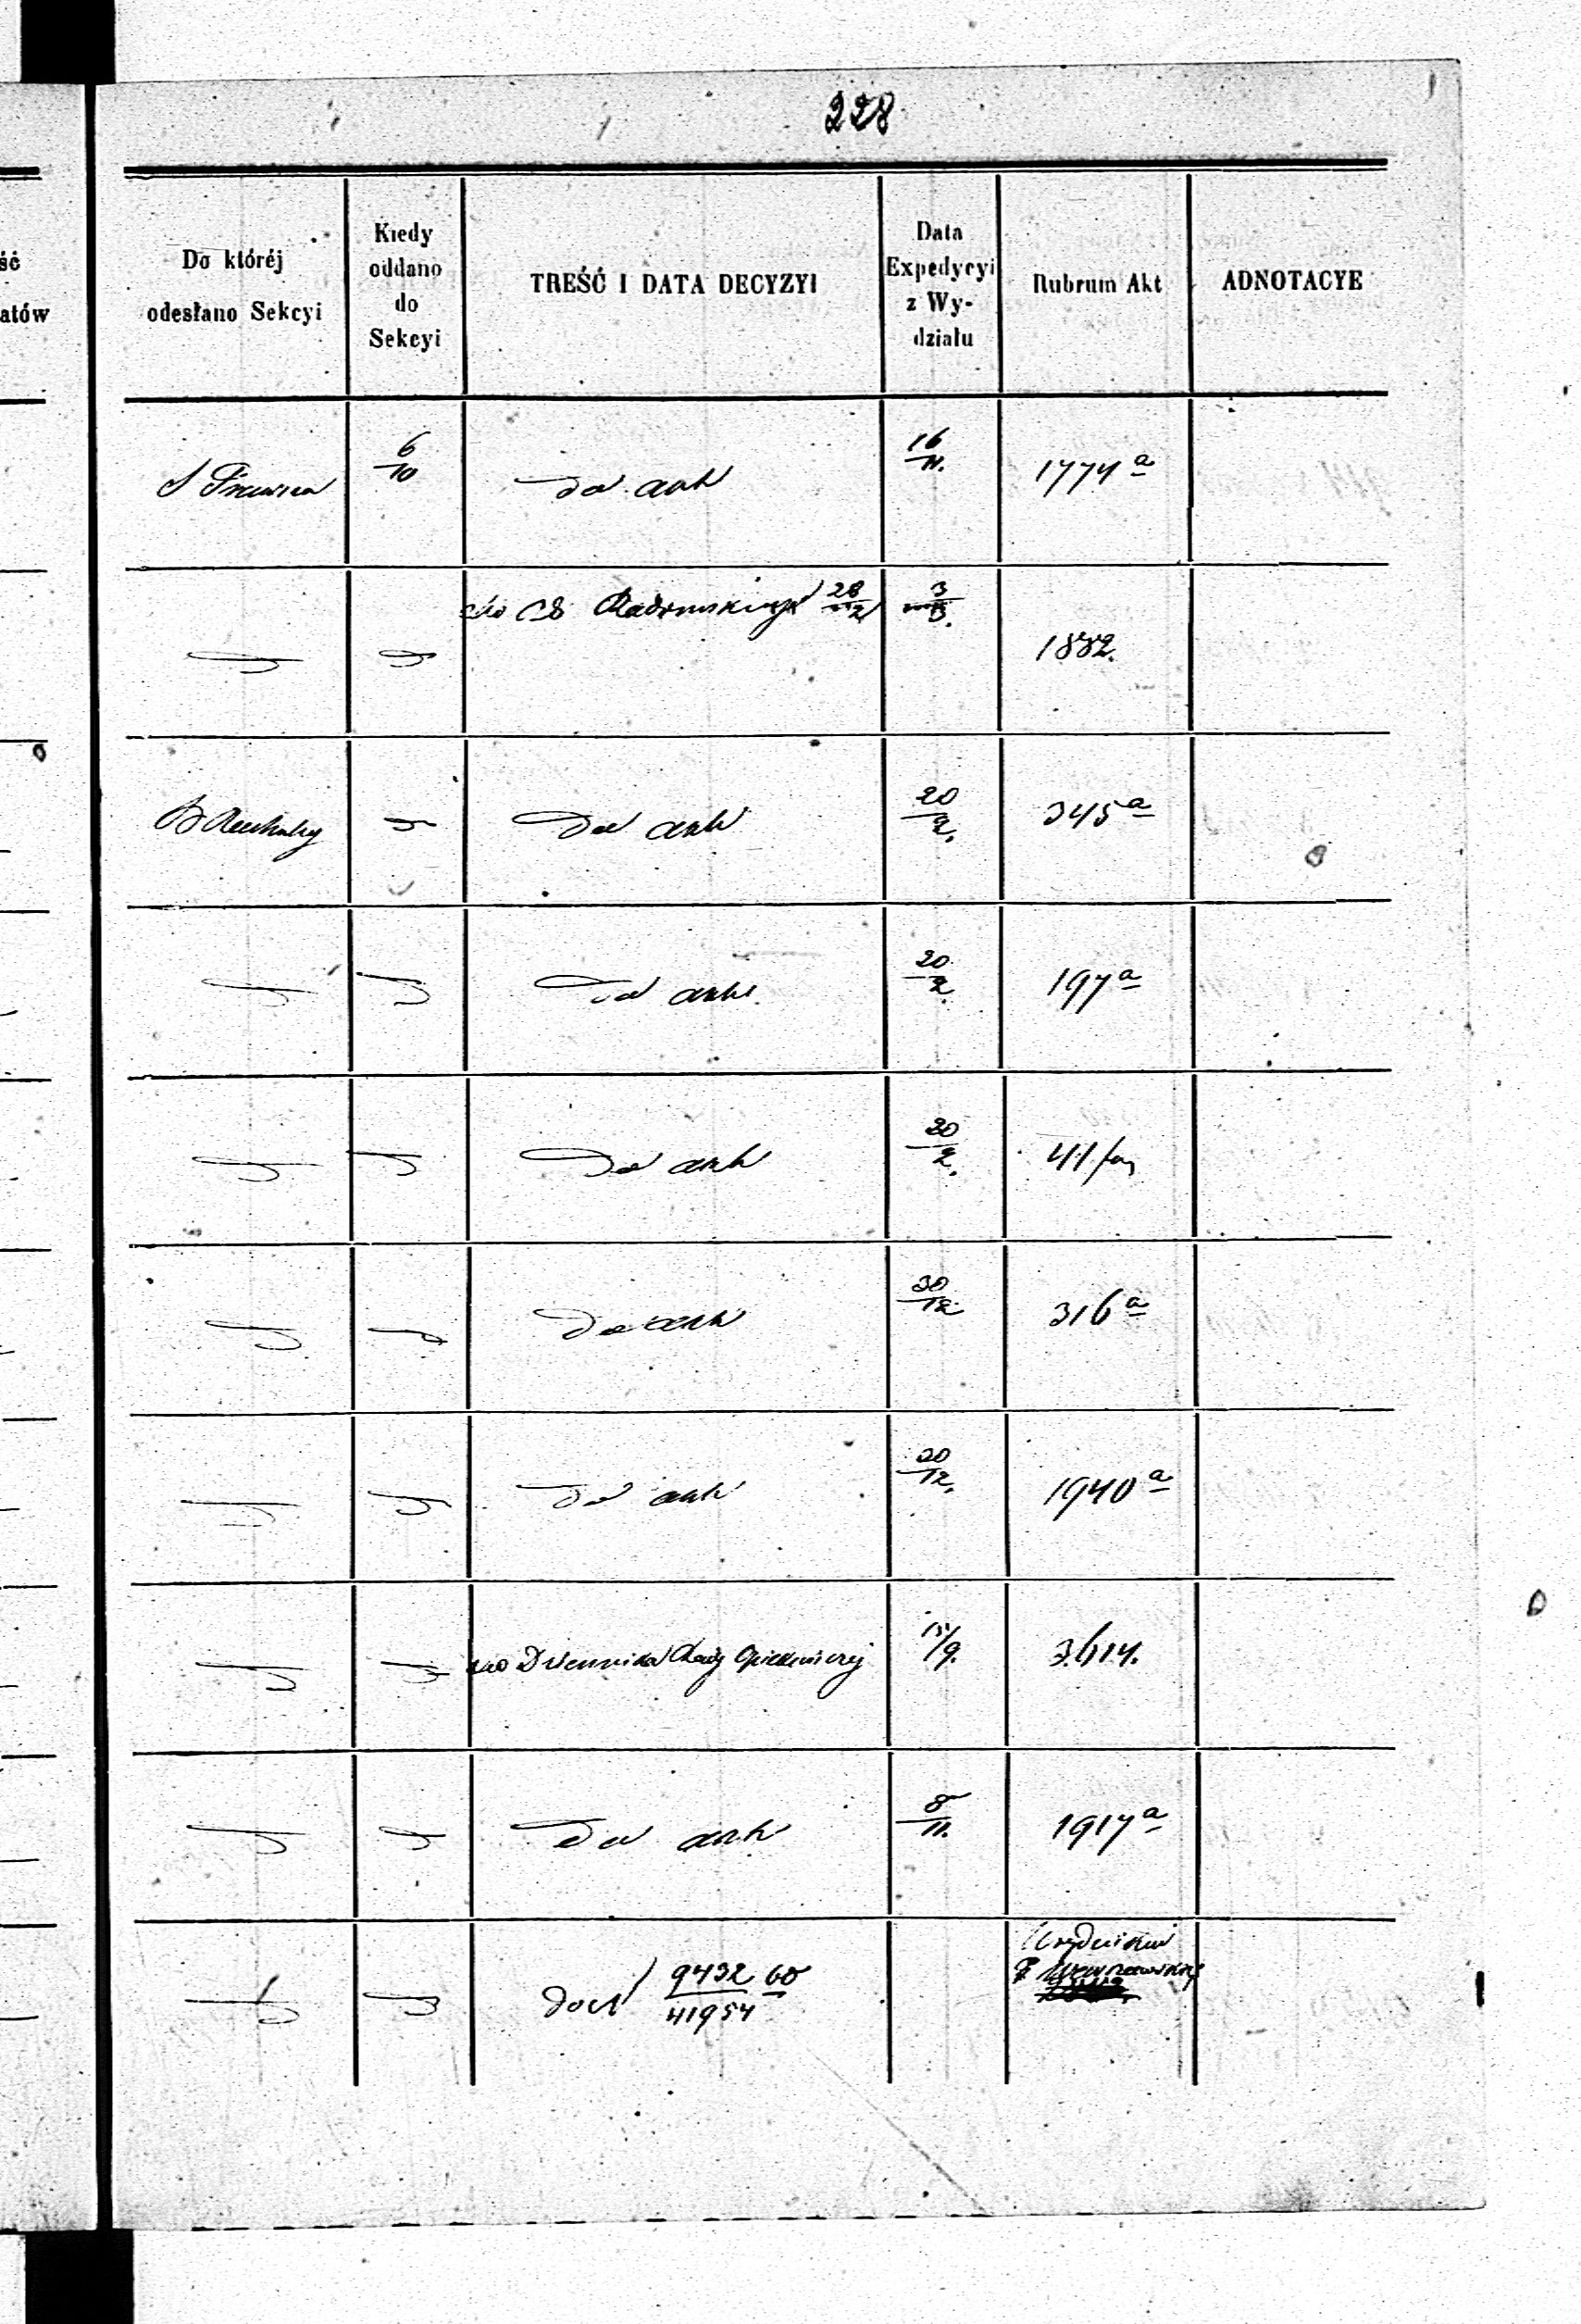 228
ść
atów
Do któréj
odesłano Sekcyi
Kiedy
oddano
do
Sekcyi
TREŚĆ I DATA DECYZYI
Data
Expedycyi
z Wy-
działu
Rubrum Akt
ADNOTACYE
6/10
do akt
16/11.
1774 a
do
28/2
3/3.
1882.
do akt
20/2.
345 a
do akt
20/2.
197 a
do akt
20/2.
41
do akt
30/12
316 a
do akt
20/12.
1940 a
do Dziennika Rady Opiekuńczej
15/9.
3614.
do akt
8/11.
1917 a
9432 60
41954